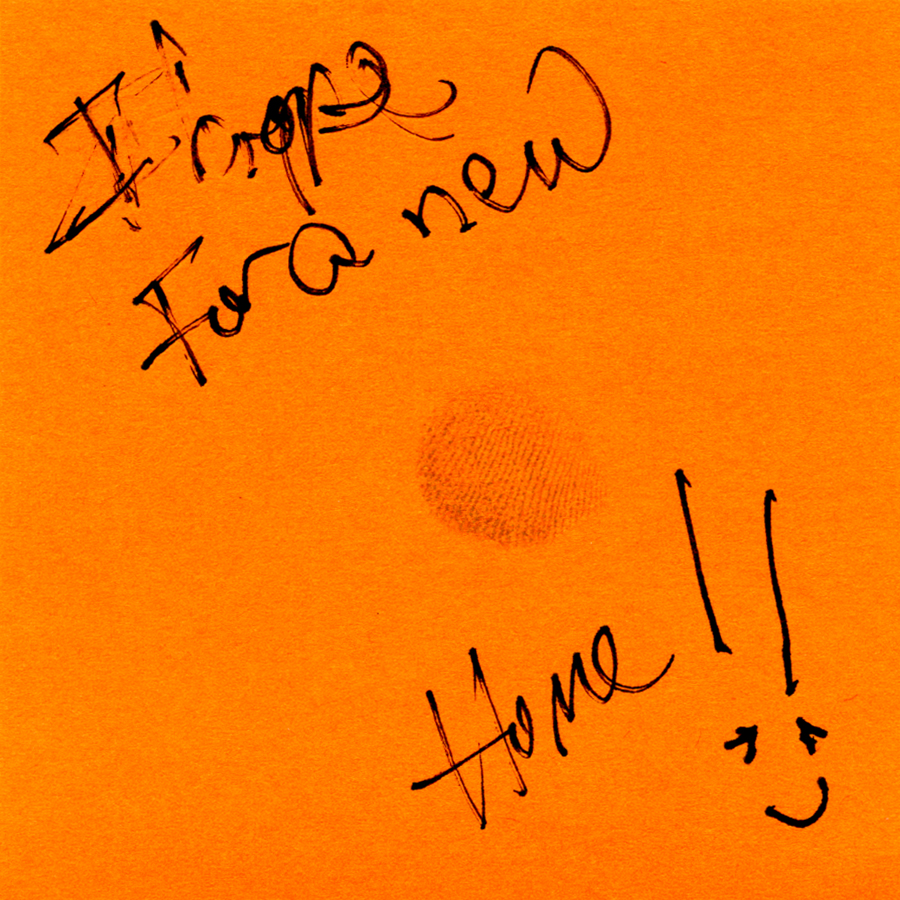 I hope
For a new
Home!!